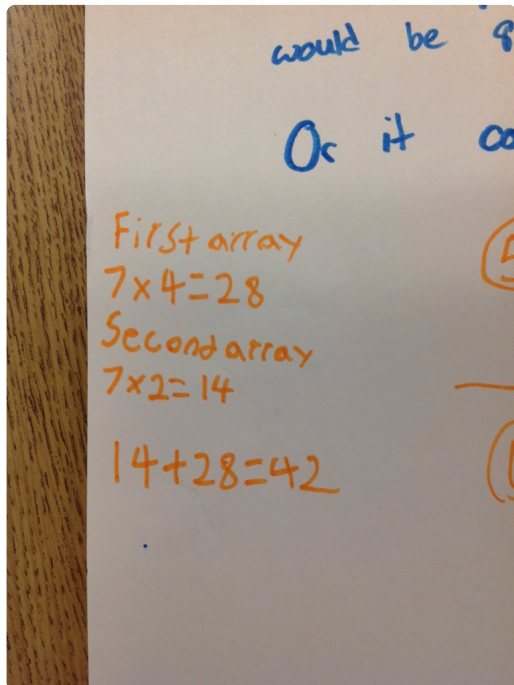 would be
Or it
First array
7×4=28
Second array
7×2=14
14+28=42